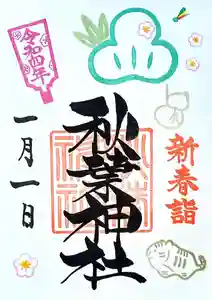 新春詣
秋葉神社
令和四年
一月一日